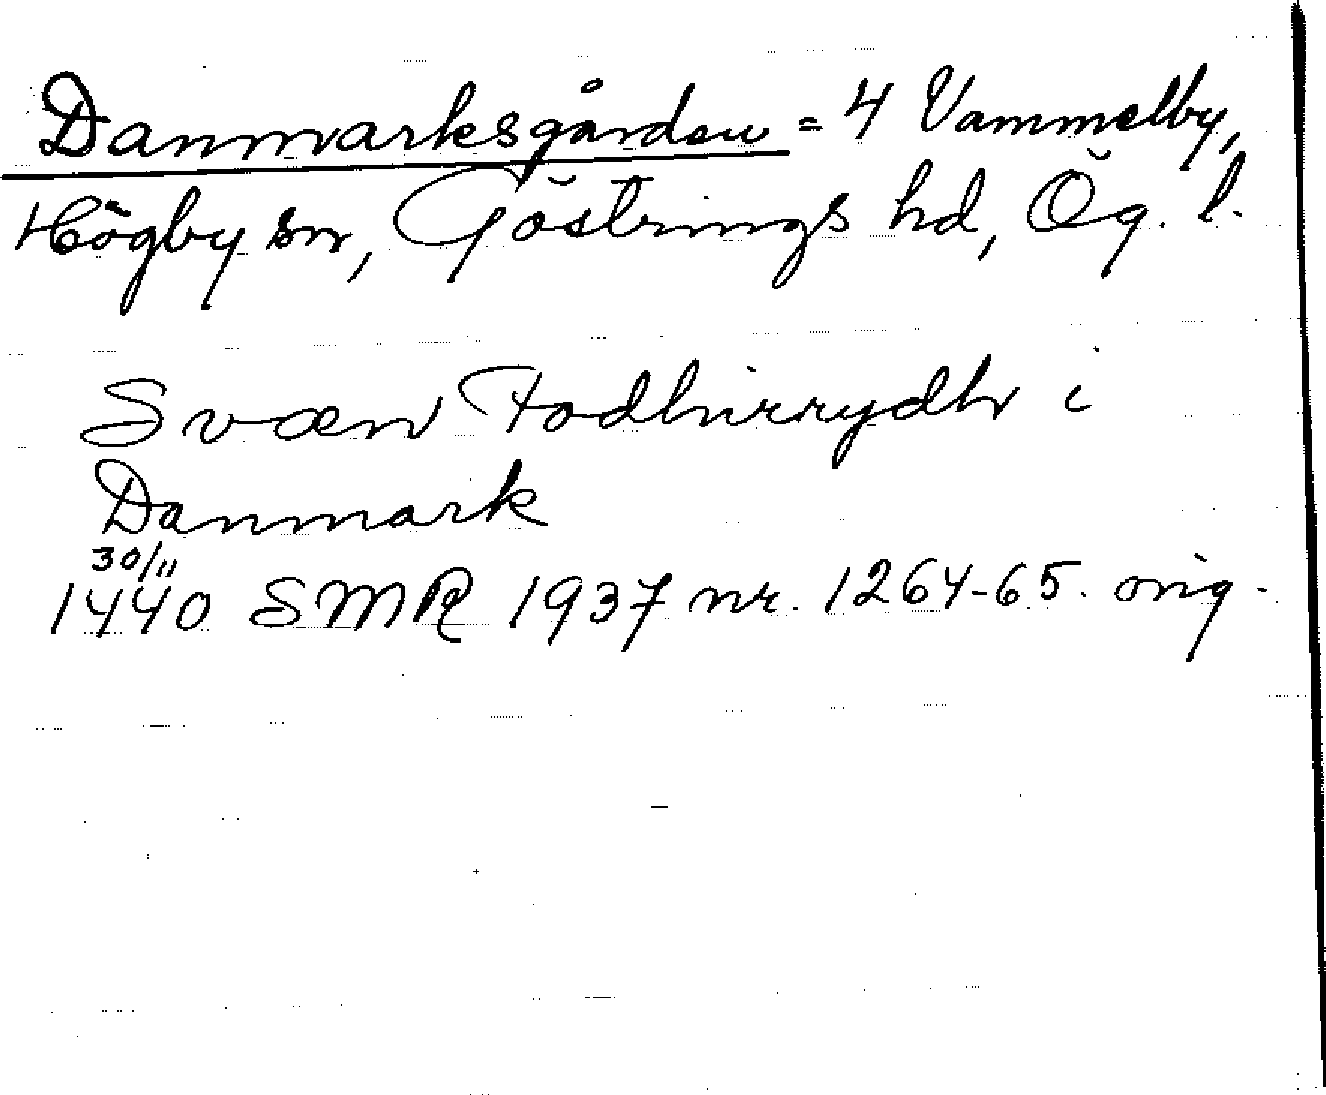 Danmarksgården = 4 Vammelby,
Högby sn, Göstrings hd, Ög. l.
Svæn Fodhirrydh i
Danmark
30/11
1440 SMR 1937 nr. 1264-65. orig.